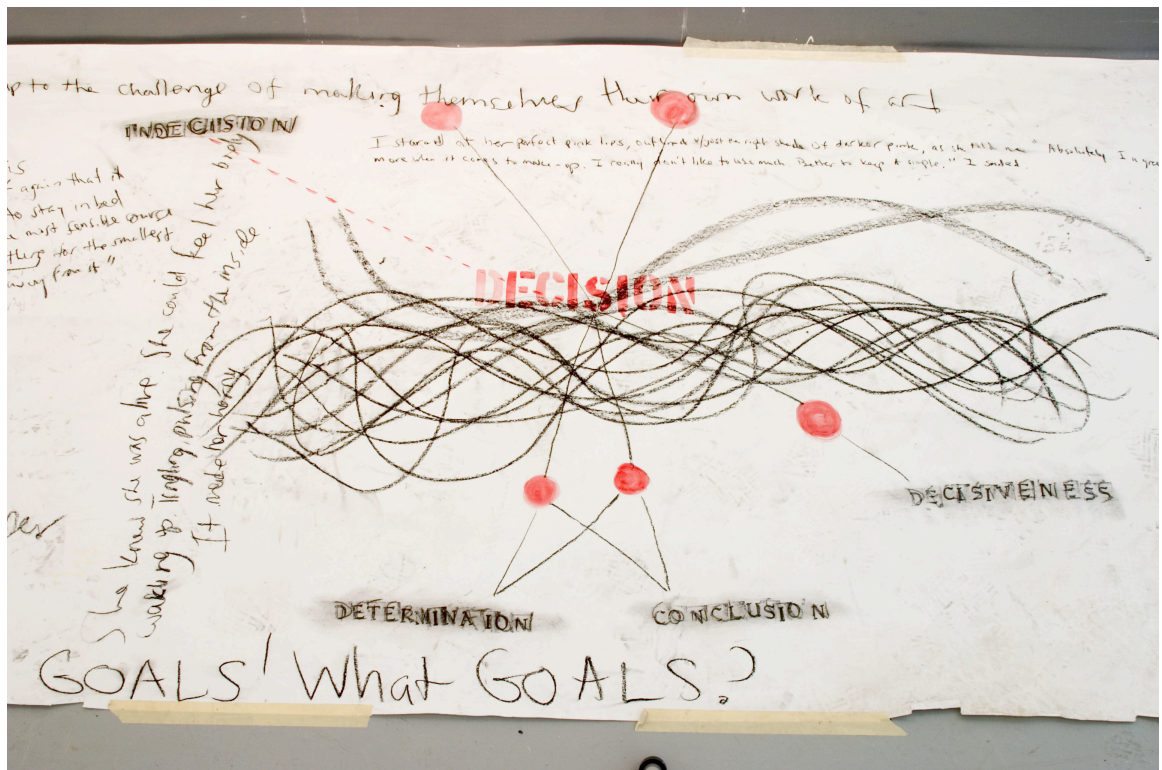 up to the challenge of making themselves their own work of art
INDECISION
I stared at her perfect pink lips, outlined w/just the right shade of darker pink, as she told me "Absolutely I
more when it comes to make-up. I really don't like to use much. Better to keep it simple." I smiled
again that it
to stay in bed
most sensible course
for the smallest
away from it"
She knew she was alive. She could feel her body
waking up. Tingling, pulsing from the inside.
It made her hungry
DECISION
DECISIVENESS
DETERMINATION
CONCLUSION
GOALS! What GOALS?